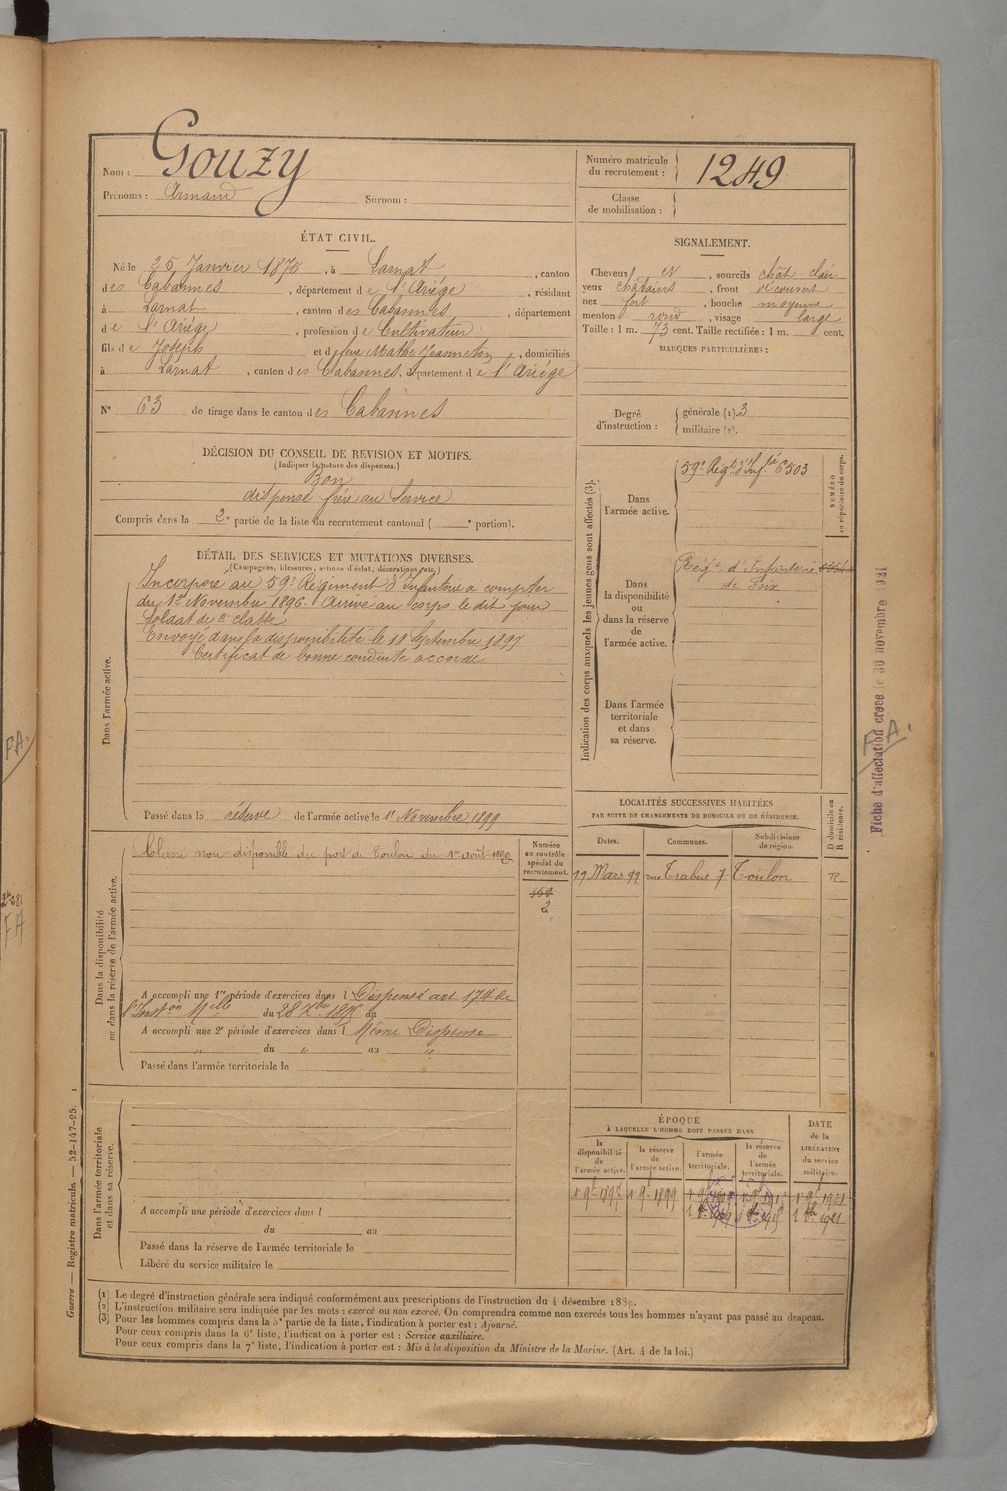 Nom : Gouzy
Prénoms : Armand Surnom :
Numéro matricule du recrutement : 1249
Classe de mobilisation :
ÉTAT CIVIL.
Né le 25 Janvier 1875, à Larnat, canton
des Cabannes, département de l'Ariège, résidant
à Larnat, canton des Cabannes, département
de l'Ariège, profession de Cultivateur
fils de Joseph et de feue Mathe Jeanneton, domiciliés
à Larnat, canton des Cabannes, département de l'Ariège
N° 63 de tirage dans le canton des Cabannes
SIGNALEMENT.
Cheveux et, sourcils chât. clair
yeux châtains, front découvert
nez fort, bouche moyenne
menton rond, visage large
Taille : 1 m. 73 cent. Taille rectifiée : 1 m. cent.
MARQUES PARTICULIÈRES :
Degré d'instruction : générale (1). 3
militaire (2).
DÉCISION DU CONSEIL DE REVISION ET MOTIFS.
(Indiquer la nature des dispenses.)
Bon
dispensé frère au Service
Compris dans la 2e partie de la liste du recrutement cantonal ( e portion).
DÉTAIL DES SERVICES ET MUTATIONS DIVERSES.
(Campagnes, blessures, actions d'éclat, décorations, etc.)
Dans l'armée active.
Incorporé au 59e Régiment d'Infanterie à compter
du 12 Novembre 1896. Arrivé au corps le dit jour
Soldat de 2e classe
Envoyé dans la disponibilité le 18 Septembre 1897
Certificat de bonne conduite accordé
Passé dans la réserve de l'armée active le 1er Novembre 1899
Indication des corps auxquels les jeunes gens sont affectés (3).
NUMÉRO au répertoire du corps.
Dans l'armée active.
59e Régt d'Inf.té 6503
Dans la disponibilité ou dans la réserve de l'armée active.
Régt d'Infanterie
de Foix
Dans l'armée territoriale et dans sa réserve.
Fiche d'affectation créée le 30 novembre 1921
F. A.
Dans la disponibilité ou dans la réserve de l'armée active.
Classé non disponible du port de Toulon du 1er août 1899
Numéro au contrôle spécial du recrutement.
2
A accompli une 1re période d'exercices dans l Dispensé art 174 de
l'Inston Melle du 28 Xbre 1895 au
A accompli une 2e période d'exercices dans l Même Dispense
" du " au "
Passé dans l'armée territoriale le
LOCALITÉS SUCCESSIVES HABITÉES
PAR SUITE DE CHANGEMENTS DE DOMICILE OU DE RÉSIDENCE.
Dates. Communes. Subdivisions de région. D domicile ou R résidence.
19 Mars 99 rue Trabuc 7 Toulon R
Dans l'armée territoriale et dans sa réserve.
A accompli une période d'exercices dans l
du au
Passé dans la réserve de l'armée territoriale le
Libéré du service militaire le
ÉPOQUE
À LAQUELLE L'HOMME DOIT PASSER DANS
la disponibilité de l'armée active. la réserve de l'armée active. l'armée territoriale. la réserve de l'armée territoriale. DATE de la LIBÉRATION du service militaire.
1er 9bre 1897 1er 9bre 1899 1er 9bre 1921
1er 8bre 1921
Guerre — Registre matricule. — 52-147-95.
(1) Le degré d'instruction générale sera indiqué conformément aux prescriptions de l'instruction du 4 décembre 1889.
(2) L'instruction militaire sera indiquée par les mots : exercé ou non exercé. On comprendra comme non exercés tous les hommes n'ayant pas passé au drapeau.
(3) Pour les hommes compris dans la 5e partie de la liste, l'indication à porter est : Ajourné.
Pour ceux compris dans la 6e liste, l'indication à porter est : Service auxiliaire.
Pour ceux compris dans la 7e liste, l'indication à porter est : Mis à la disposition du Ministre de la Marine. (Art. 4 de la loi.)